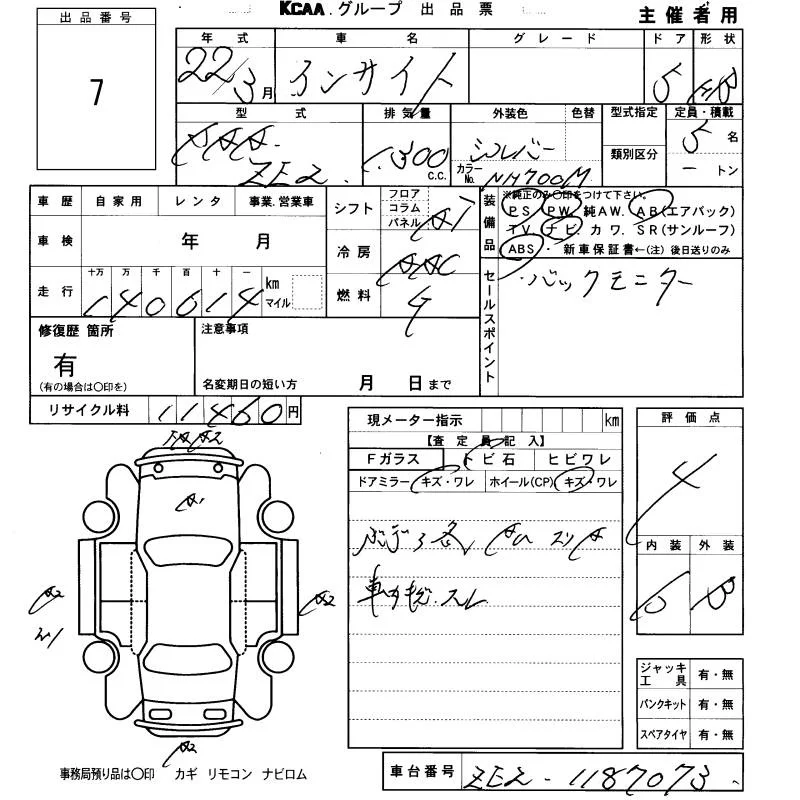 KCAA.グループ 出品票
主催者用
出品番号
7
年式 車名 グレード ドア 形状
22/3月 インサイト 5 HB
型式 排気量 外装色 色替 型式指定 定員・積載
DAA
ZE2 1300 c.c. シルバー 類別区分 5名
カラーNo. NH700M ートン
車歴 自家用 レンタ 事業.営業車
車検 年 月
走行 十万 万 千 百 十 一 km マイル
140614
シフト フロア コラム パネル AT
冷房 AAC
燃料 G
装備品 ※純正のみ〇印をつけて下さい。
PS PW 純AW. AB(エアバック)
TV ナビ カワ. SR(サンルーフ)
ABS ・ 新車保証書←(注) 後日送りのみ
セールスポイント
・バックモニター
修復歴 箇所
有
(有の場合は〇印を)
注意事項
名変期日の短い方 月 日まで
リサイクル料 11460円
現メーター指示 km
【査定員記入】
Fガラス トビ石 ヒビワレ
ドアミラー キズ・ワレ ホイール(CP) キズ・ワレ
評価点
4
内装 外装
B
A1
A2
A2
A2
ジャッキ工具 有・無
パンクキット 有・無
スペアタイヤ 有・無
事務局預り品は〇印 カギ リモコン ナビロム
車台番号 ZE2-1187073